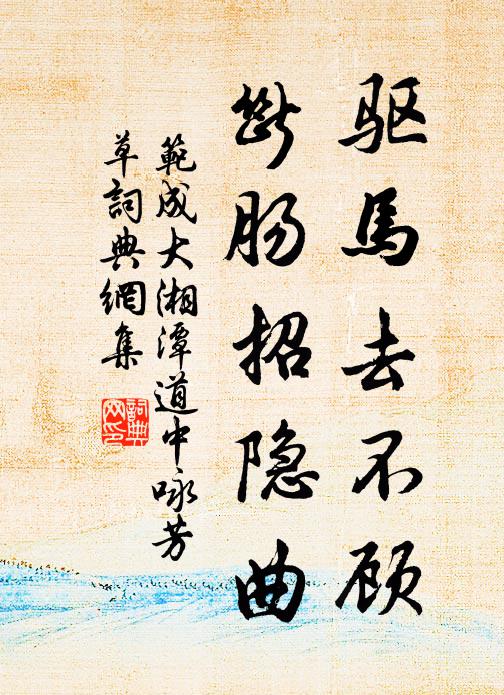 驱馬去不顾
断肠招隐曲
範成大湘潭道中咏芳
草詞典網集
詞典
網印